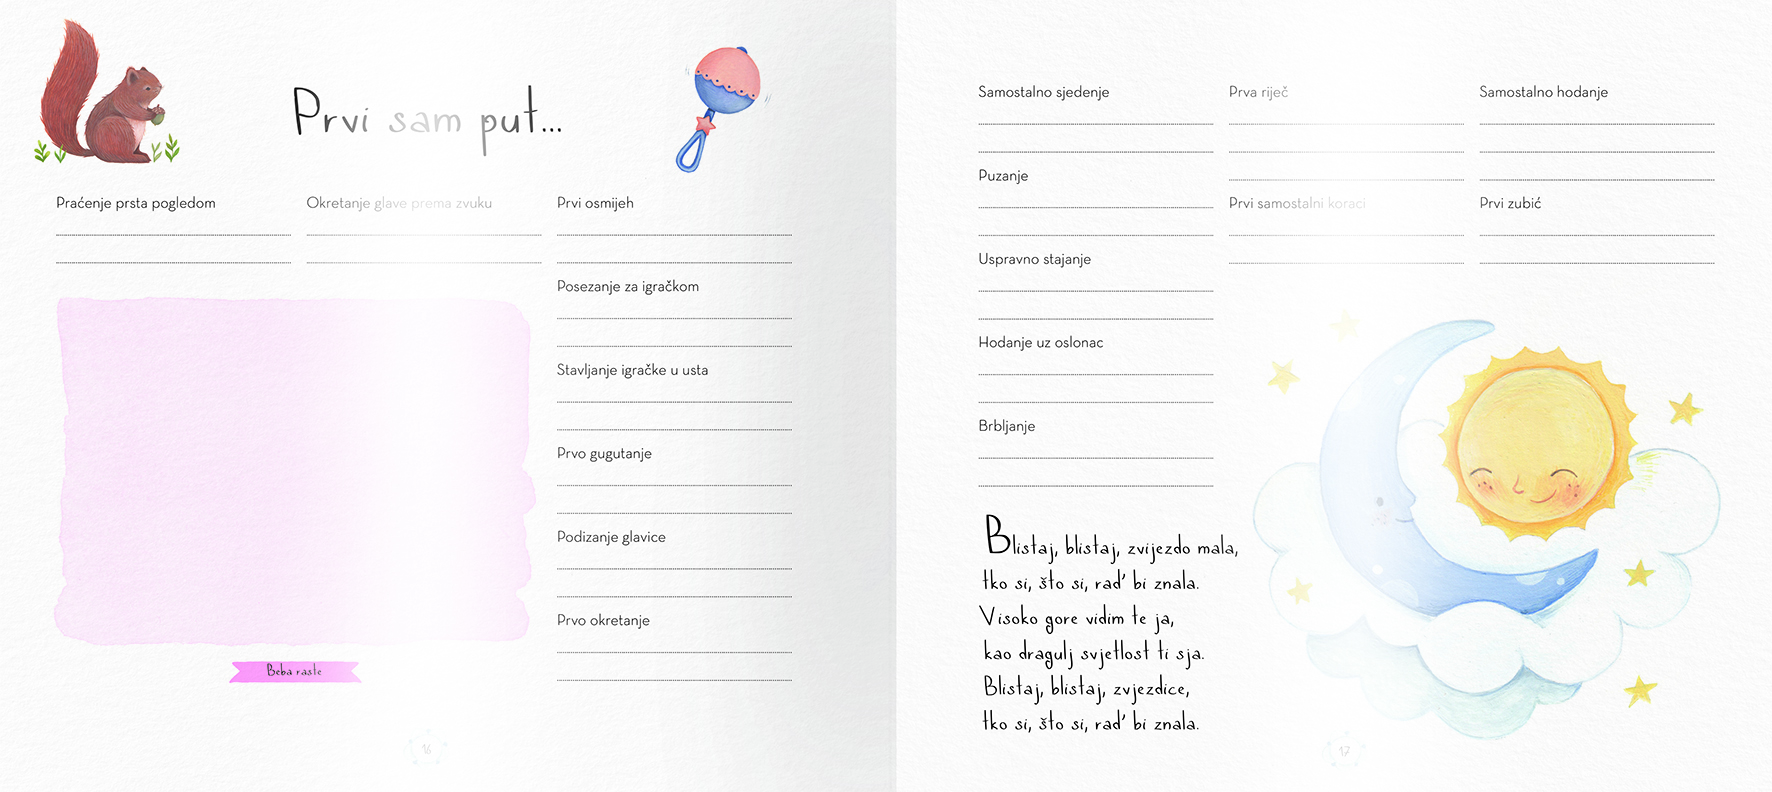 Prvi sam put...
Praćenje prsta pogledom
Okretanje glave prema zvuku
Prvi osmijeh
Posezanje za igračkom
Stavljanje igračke u usta
Prvo gugutanje
Podizanje glavice
Prvo okretanje
Beba raste
16
Samostalno sjedenje
Puzanje
Uspravno stajanje
Hodanje uz oslonac
Brbljanje
Prva riječ
Prvi samostalni koraci
Samostalno hodanje
Prvi zubić
Blistaj, blistaj, zvijezdo mala,
tko si, što si, rad' bi znala.
Visoko gore vidim te ja,
kao dragulj svjetlost ti sja.
Blistaj, blistaj, zvjezdice,
tko si, što si, rad' bi znala.
17